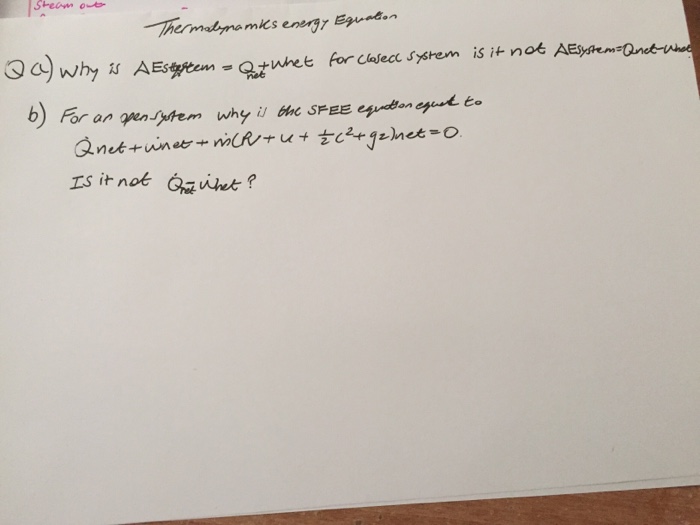 Steam out
Thermodynamics energy Equation
Q a) Why is ΔEsystem = Qnet + Wnet for closed system is it not ΔEsystem = Qnet - Wnet
b) For an open system why is the SFEE equation equal to
Q̇net + ẇnet + ṁ(PV + u + ½c² + gz)net = 0.
Is it not Q̇net - ẇnet?